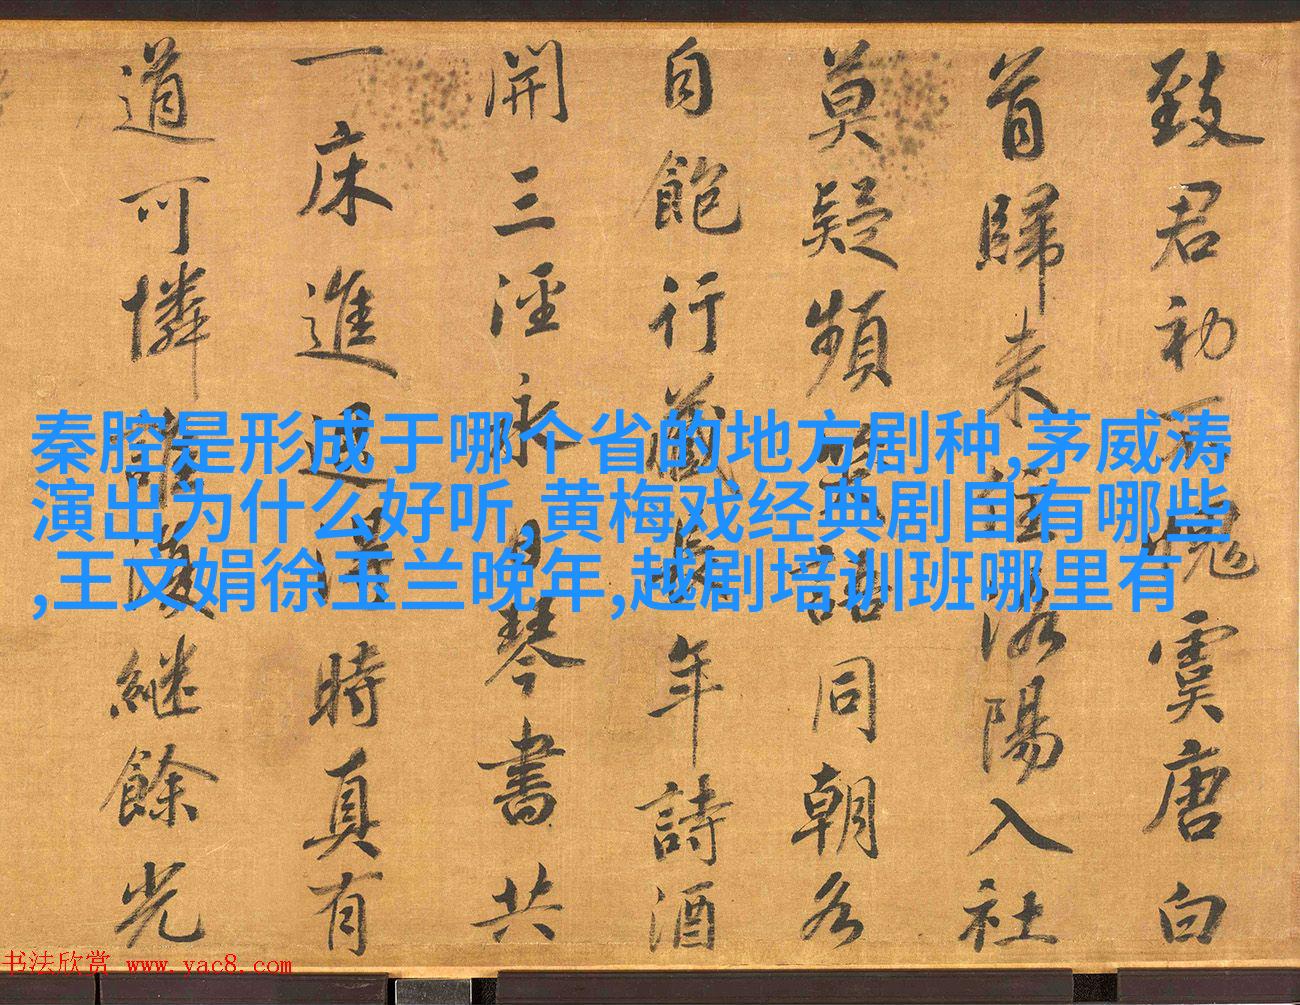 秦腔是形成于哪个省的地方剧种,茅威涛
演出为什么好听,黄梅戏经典剧目有哪些
,王文娟徐玉兰晚年,越剧培训班哪里有
致君初不愧虞唐白
首歸来住洛陽入社
莫疑頻笑語同朝各
自飽行藏長年詩酒
開三涇永日琴書共
一床進退得時真有
道可憐誰復継餘光
书法欣赏 www.yac8.com